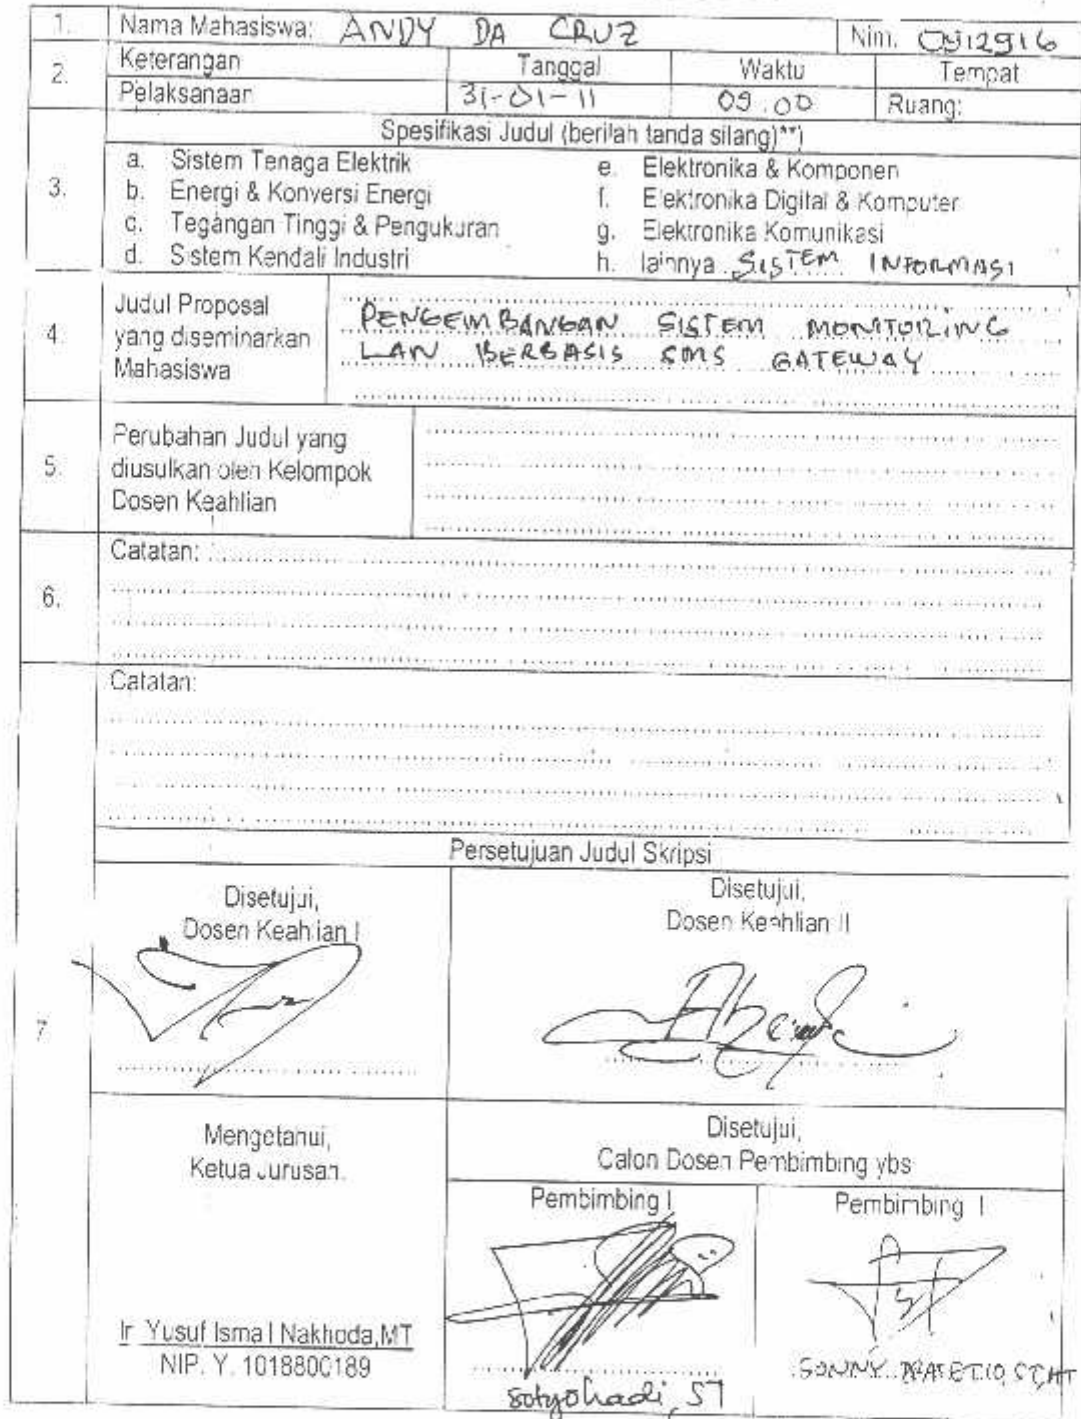 1. Nama Mahasiswa: ANDY DA CRUZ Nim. 0912916
2. Keterangan Pelaksanaan Tanggal Waktu Tempat
31-01-11 09.00 Ruang:
3. Spesifikasi Judul (berilah tanda silang)**)
a. Sistem Tenaga Elektrik
b. Energi & Konversi Energi
c. Tegangan Tinggi & Pengukuran
d. Sistem Kendali Industri
e. Elektronika & Komponen
f. Elektronika Digital & Komputer
g. Elektronika Komunikasi
h. lainnya SISTEM INFORMASI
4. Judul Proposal
yang diseminarkan
Mahasiswa
PENGEMBANGAN SISTEM MONITORING
LAN BERBASIS SMS GATEWAY
5. Perubahan Judul yang
diusulkan oleh Kelompok
Dosen Keahlian
6. Catatan:
Catatan:
7. Persetujuan Judul Skripsi
Disetujui,
Dosen Keahlian I
Disetujui,
Dosen Keahlian II
Mengetahui,
Ketua Jurusan.
Ir Yusuf Ismail Nakhoda,MT
NIP. Y. 1018800189
Disetujui,
Calon Dosen Pembimbing ybs
Pembimbing I
Sotyohadi, ST
Pembimbing I
SONNY ST,MT